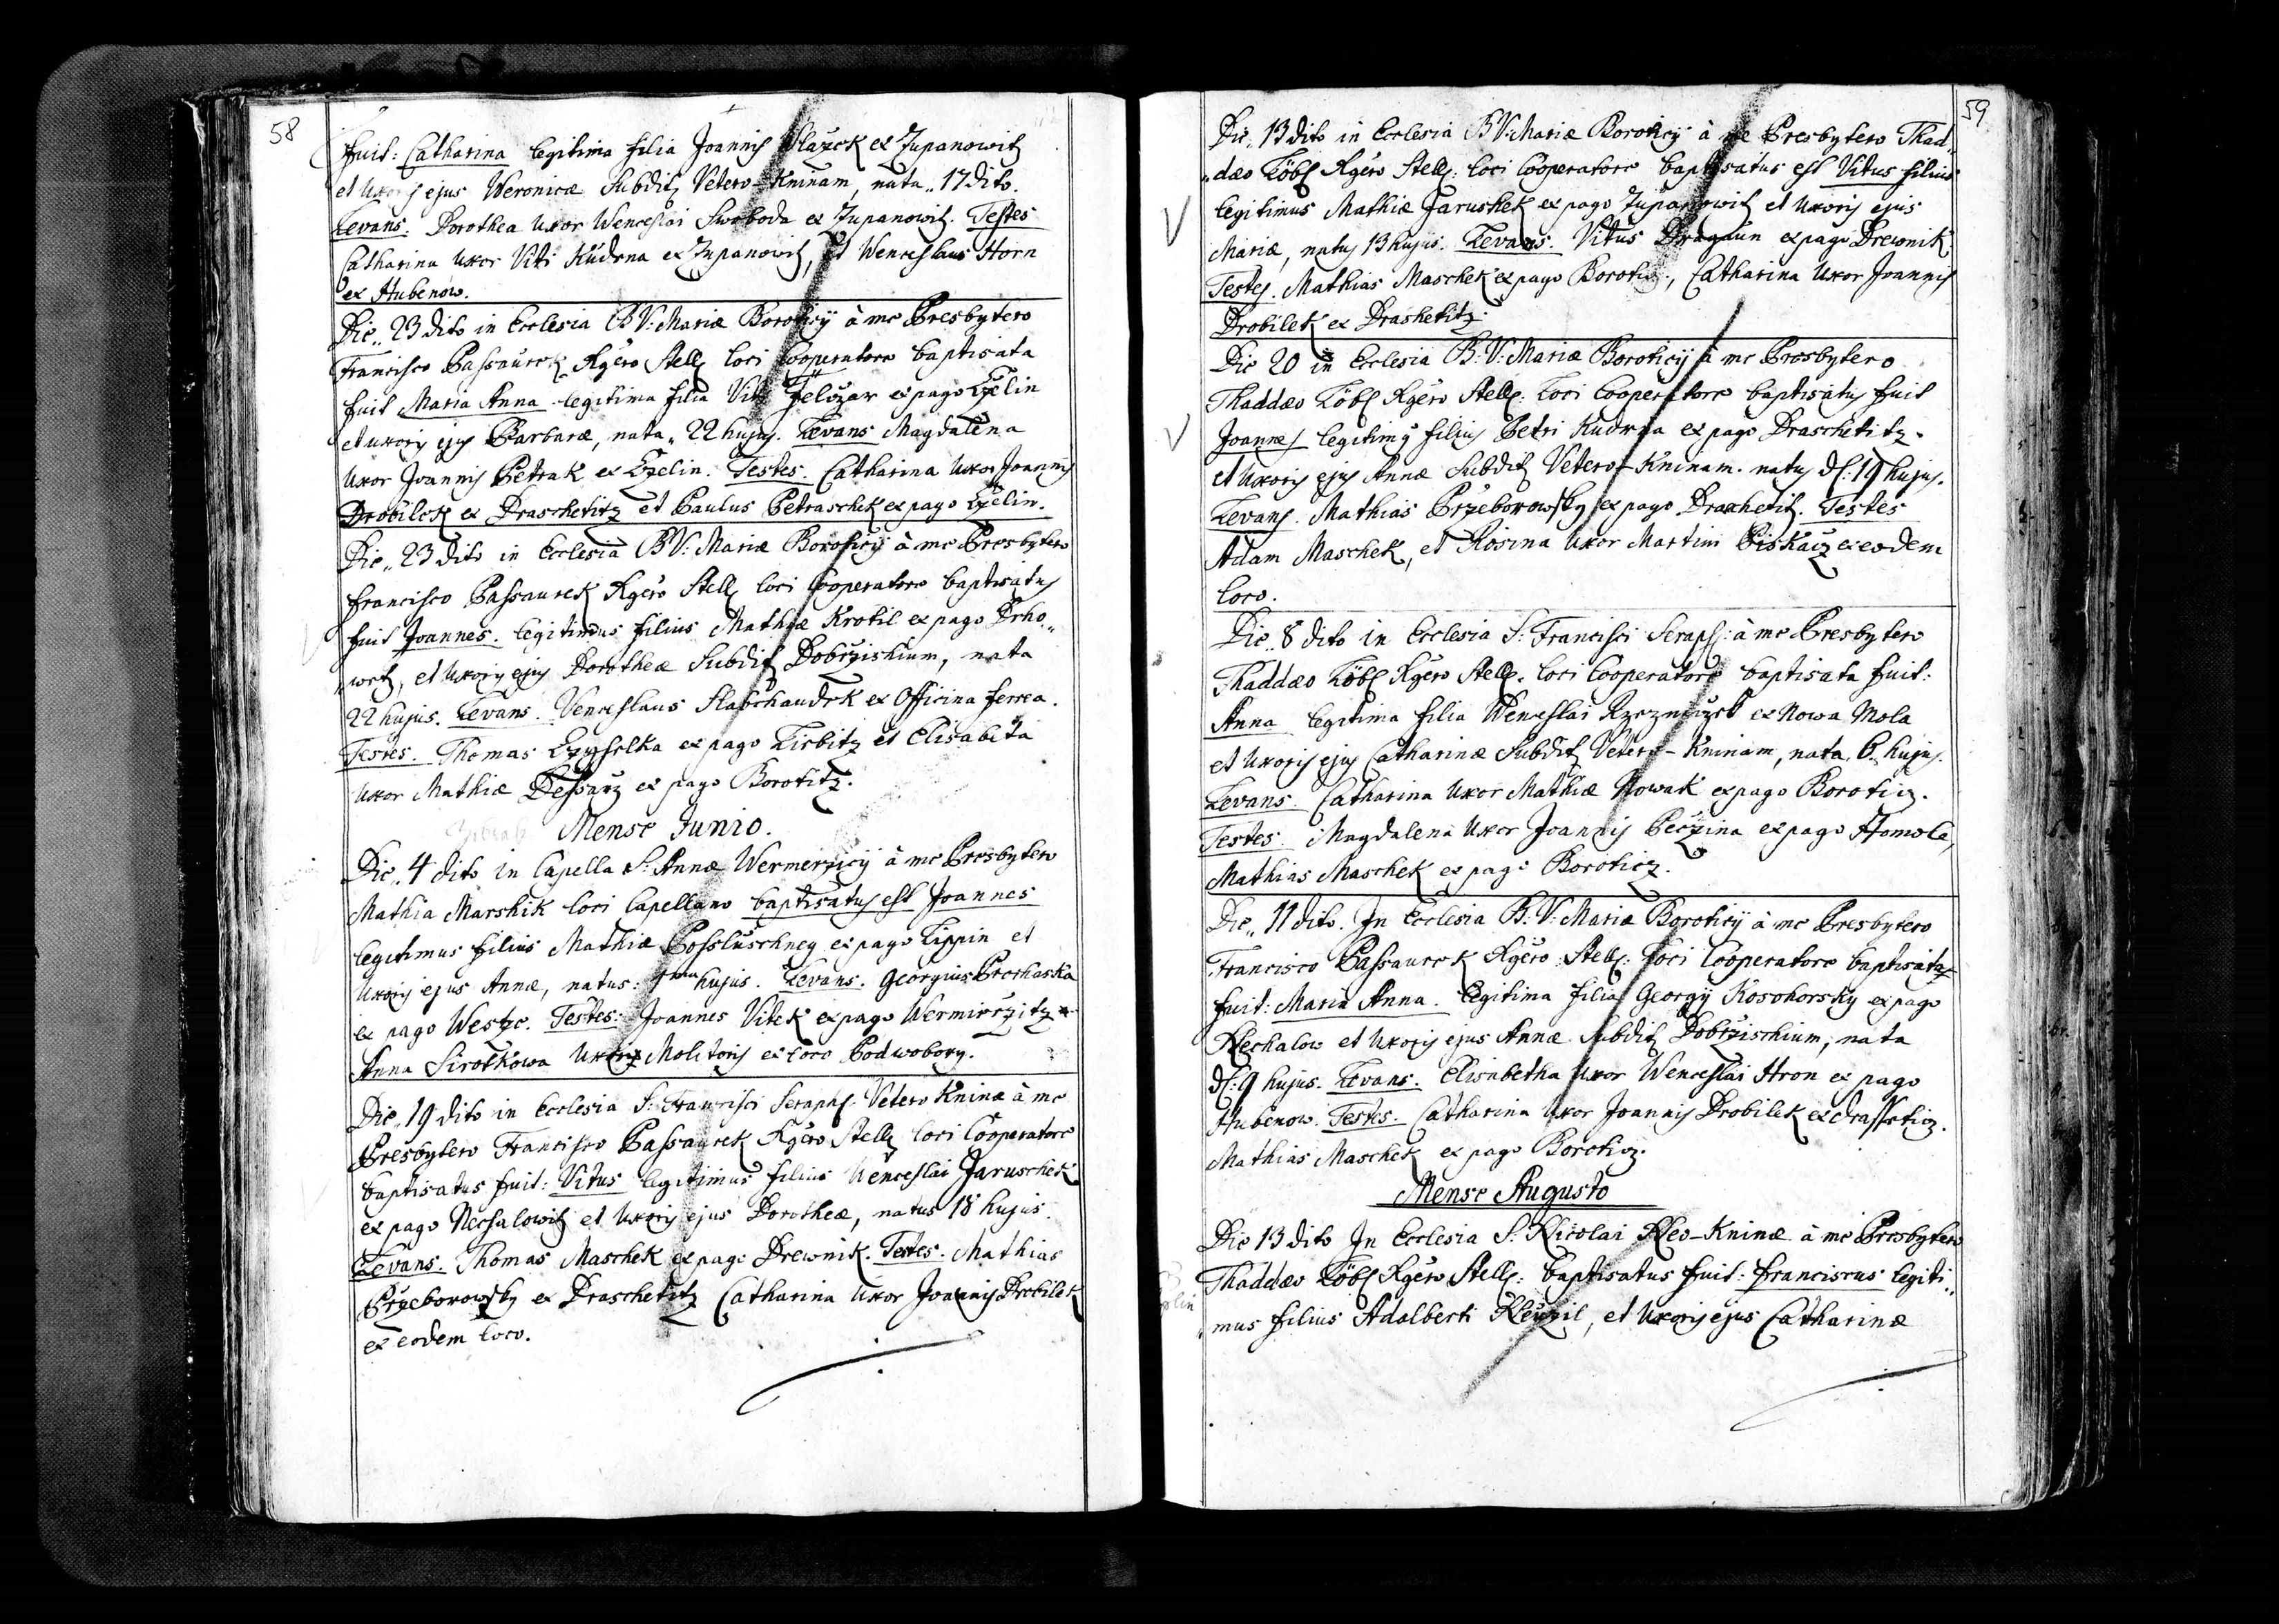 58
fuit: Catharina legitima filia Joannis Wlazek ex Zupanowitz
et Uxoris ejus Weronicæ Subdit Vetero-Kninam, nata 17 dito.
Levans. Dorothea Uxor Wenceslai Swoboda ex Zupanowitz. Testes
Catharina Uxor Viti Kudrna ex Zupanowitz, et Wenceslaus Horn
ex Hubenow.
Die 23 dito in Ecclesia B V: Mariæ Boroticij à me Presbytero
Francisco Passaurek Rgero Stell loci Cooperatore baptisata
fuit Maria Anna legitima filia Viti ex pago Czelin
et uxoris ejus Barbaræ, nata 22 hujus. Levans Magdalena
Uxor Joannis Petrak ex Czelin. Testes. Catharina Uxor Joannis
Drobilek ex Draschetitz et Paulus Petraschek ex pago Czelin.
Die 23 dito in Ecclesia B V: Mariæ Boroticij à me Presbytero
Francisco Passaurek Rgero Stell loci Cooperatore baptisatus
fuit Joannes. legitimus filius Mathiæ Krotil ex pago Drho„
„wetz, et Uxoris ejus Dorotheæ Subdit Dobrzishium, nata
22 hujus. Levans. Venceslaus Slabchaudek ex Officina ferrea.
Testes. Thomas ex pago Lisbitz et Elisabeta
Uxor Mathiæ ex pago Borotitz.
Mense Junio.
Die 4 dito in Capella S: Annæ Wermerzicij à me Presbytero
Mathia Marshik loci Capellano baptisatus est Joannes
legitimus filius Mathiæ Possluschney ex pago Lippin et
Uxoris ejus Annæ, natus: hujus. Levans. Georgius Prochaska
ex pago Westze. Testes: Joannes Vitek ex pago Wermirzitz
Anna Sirotkowa Molitoris ex loco Podwobory.
Die 19 dito in Ecclesia S: Francisci Seraph: Vetero Kninæ à me
Presbytero Francisco Passaurek Rgero Stell loci Cooperatore
baptisatus fuit: Vitus legitimus filius Wenceslai Jaruschek
ex pago Nechalowitz et Uxoris ejus Dorotheæ, natus 18 hujus.
Levans. Thomas Maschek ex pago Drewnik. Testes. Mathias
Przeborowsky ex Draschetitz Catharina Uxor Joannis Drobilek
ex eodem loco.
59
Die 13 dito in Ecclesia B V: Mariæ Boroticij à me Presbytero Thad„
„dæo Löbl Rgero Stell: loci Cooperatore baptisatus est Vitus filius
legitimus Mathiæ Jarushek ex pago Zupanowitz et Uxoris ejus
Mariæ, natus 13 hujus. Levans. Vitus Dragaun ex pago Drewnik.
Testes. Mathias Maschek ex pago Borotitz, Catharina Uxor Joannis
Drobilek ex Drashetitz.
Die 20 in Ecclesia B: V: Mariæ Boroticij à me Presbytero
Thaddæo Löbl Rgero Stell: Loci Cooperatore baptisatus fuit
Joannes legitimus filius Petri Kudrna ex pago Draschetitz.
et Uxoris ejus Annæ Subdit Vetero-Kninam. natus d: 19 hujus.
Levans. Mathias Przeborowsky ex pago Drashetitz. Testes
Adam Maschek, et Rosina Uxor Martini Piskacz ex eodem
loco.
Die 8 dito in Ecclesia S: Francisci Seraph: à me Presbytero
Thaddæo Löbl Rgero Stell. loci Cooperatore baptisata fuit:
Anna legitima filia Wenceslai ex Nowa Mola
et Uxoris ejus Catharinæ Subdit Vetero-Kninam, nata 6 hujus.
Levans. Catharina Uxor Mathiæ Nowak ex pago Boroticz.
Testes. Magdalena Uxor Joannis Peczina ex pago Homole,
Mathias Maschek ex pago Boroticz.
Die 11 dito. In Ecclesia B: V: Mariæ Boroticij à me Presbytero
Francisco Passaurek Rgero Stell: loci Cooperatore baptisata
fuit: Maria Anna. legitima filia Georgij Kosohorsky ex pago
Nechalow et Uxoris ejus Annæ Subdit Dobrzischium, nata
d: 9 hujus. Levans. Elisabetha Uxor Wenceslai Hron ex pago
Hubenow. Testes. Catharina Uxor Joannis Drobilek ex Drasseticz.
Mathias Maschek ex pago Boroticz.
Mense Augusto
Die 13 dito In Ecclesia S: Nicolai Neo-Kninæ à me Presbytero
Thaddæo Löbl Rgero Stell: baptisatus fuit: Franciscus legiti„
„mus filius Adalberti Neuzil, et Uxoris ejus Catharinæ